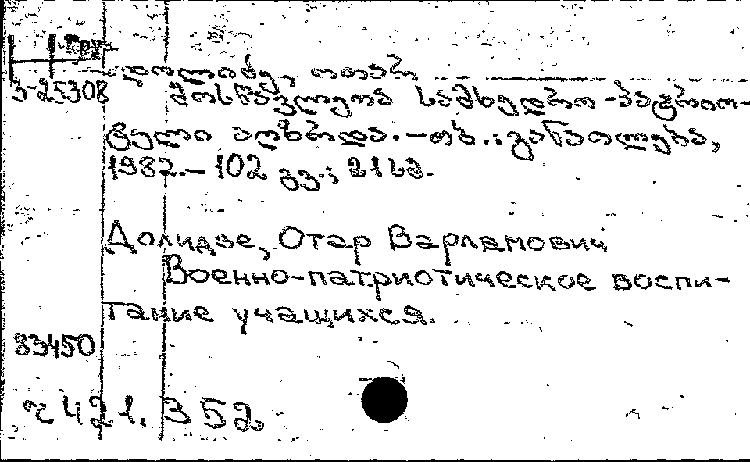 Гру
დოლიძე, ოთარ.
3-25308 მოსწავლეთა სამხედრო-პატრიო-
ტული აღზრდა.-თბ.:განათლება,
1982.-102 გვ.; 21სმ.
Долидзе, Отар Варламович
Военно-патриотическое воспи-
тание учащихся.
83450
421.352